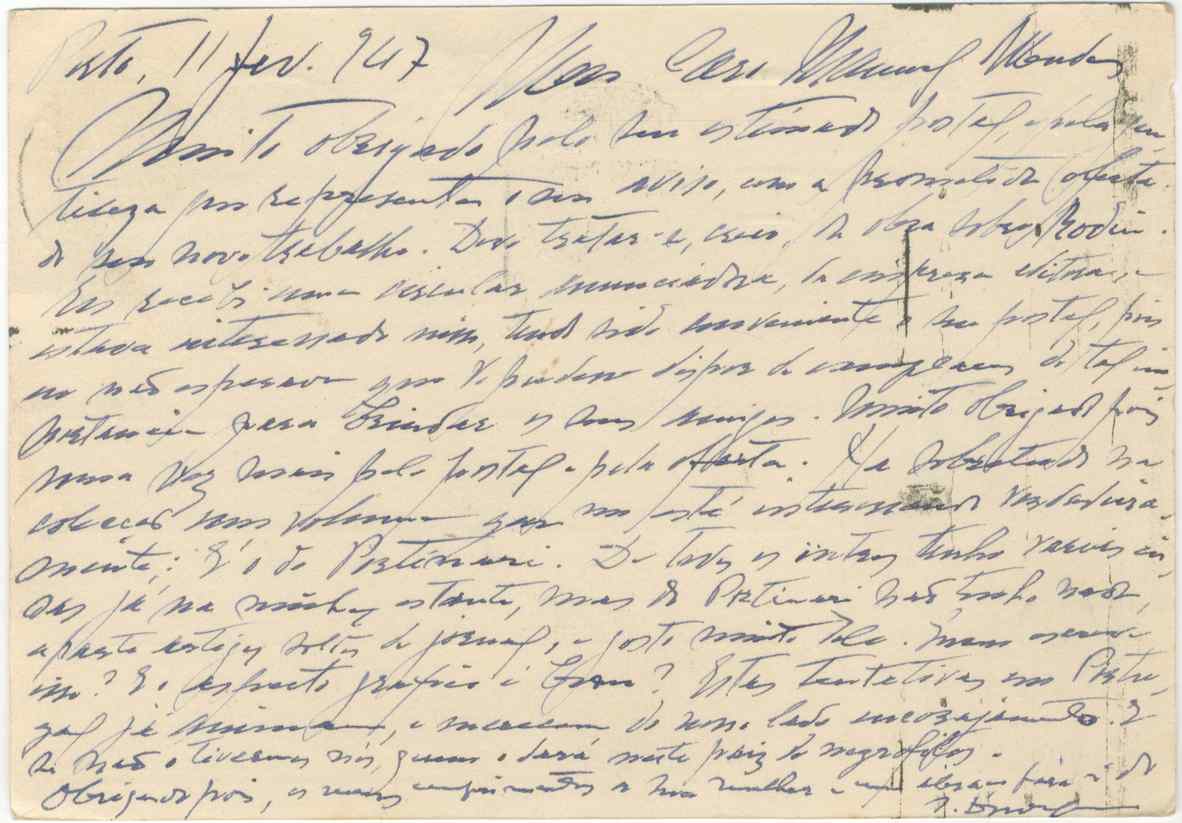 Porto, 11 fev. 947 Meu Caro Manuel Mendes
Muito obrigado pelo seu estimado postal, e pela gen
tileza que representa o seu aviso, com a prometida oferta
do seu novo trabalho. Deve tratar-se, creio, da obra sobre Rodin.
Eu recebi uma circular anunciadora, da empreza editora, e
estava interessado nisso, tendo sido conveniente o seu postal, pois
eu não esperava que V. pudesse dispor de exemplares de tal im
portancia para brindar os seus amigos. Muito obrigado pois
uma vez mais pelo postal e pela oferta. Ha sobretudo na
coleção um volume que me está interessando verdadeira
mente; É o do Portinari. De todos os outros tenho varias coi
sas já na minha estante, mas do Portinari não tenho nada,
aparte artigos soltos de jornal, e gosto muito dele. Quem escreve
isso? E o aspecto grafico é bom? Estas tentativas em Portu
gal já animam, e merecem do nosso lado encorajamento. E
se não o tivermos nós, quem o dará neste paiz de
Obrigado pois, os meus cumprimentos a sua mulher e um abraço para si do